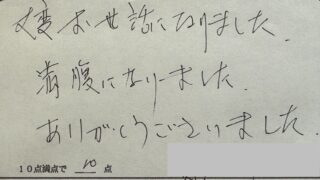 大変お世話になりました.
満腹になりました.
ありがとうございました.
10点満点で 10 点